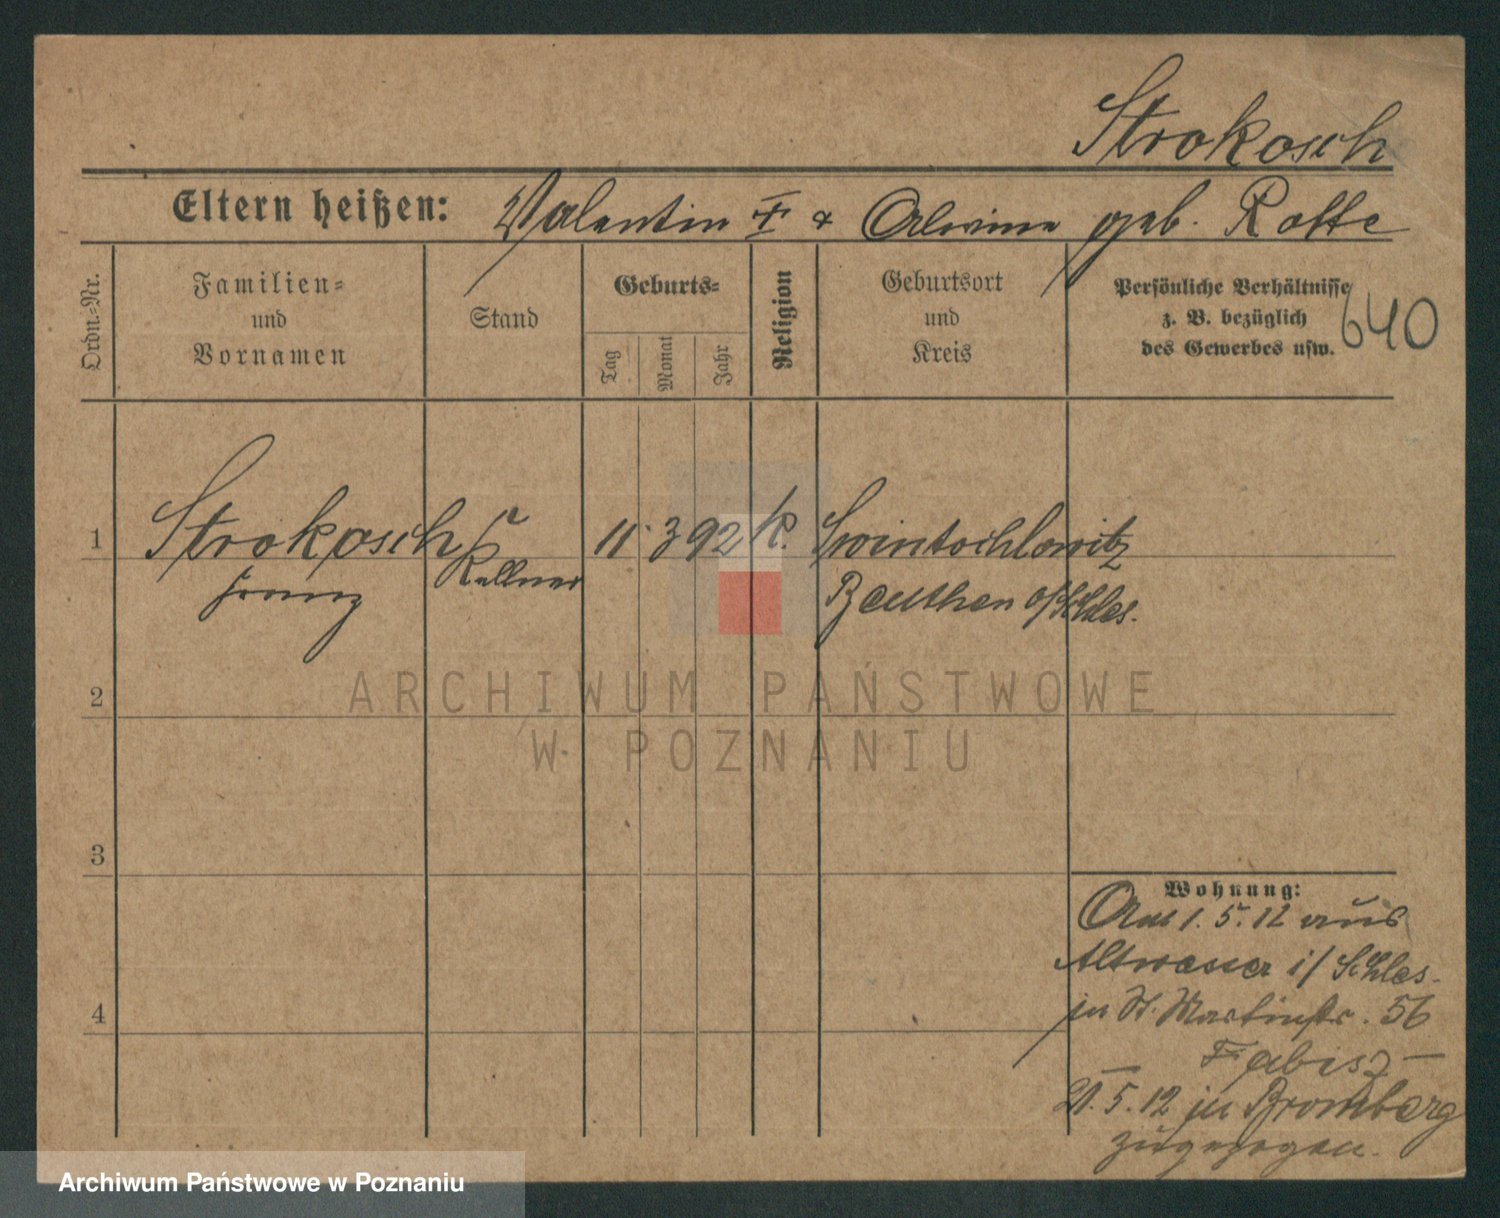 Strokosch
Eltern heißen: Valentin † & Alwine geb. Rotte
Ordn.-Nr.
Familien-
und
Vornamen
Stand
Geburts-
Tag
Monat
Jahr
Religion
Geburtsort
und
Kreis
Persönliche Verhältnisse
z. B. bezüglich
des Gewerbes usw.
640
1 Strokosch Kellner 11 3 92 K. Swintochlowitz
Franz Beuthen o/Schles.
2
3
4
Wohnung:
Am 1. 5. 12 aus
Altwasser i/ Schles.
in St. Martinstr. 56
Fabisz –
21. 5. 12 in Bromberg
zugezogen.
ARCHIWUM PAŃSTWOWE
W POZNANIU
Archiwum Państwowe w Poznaniu